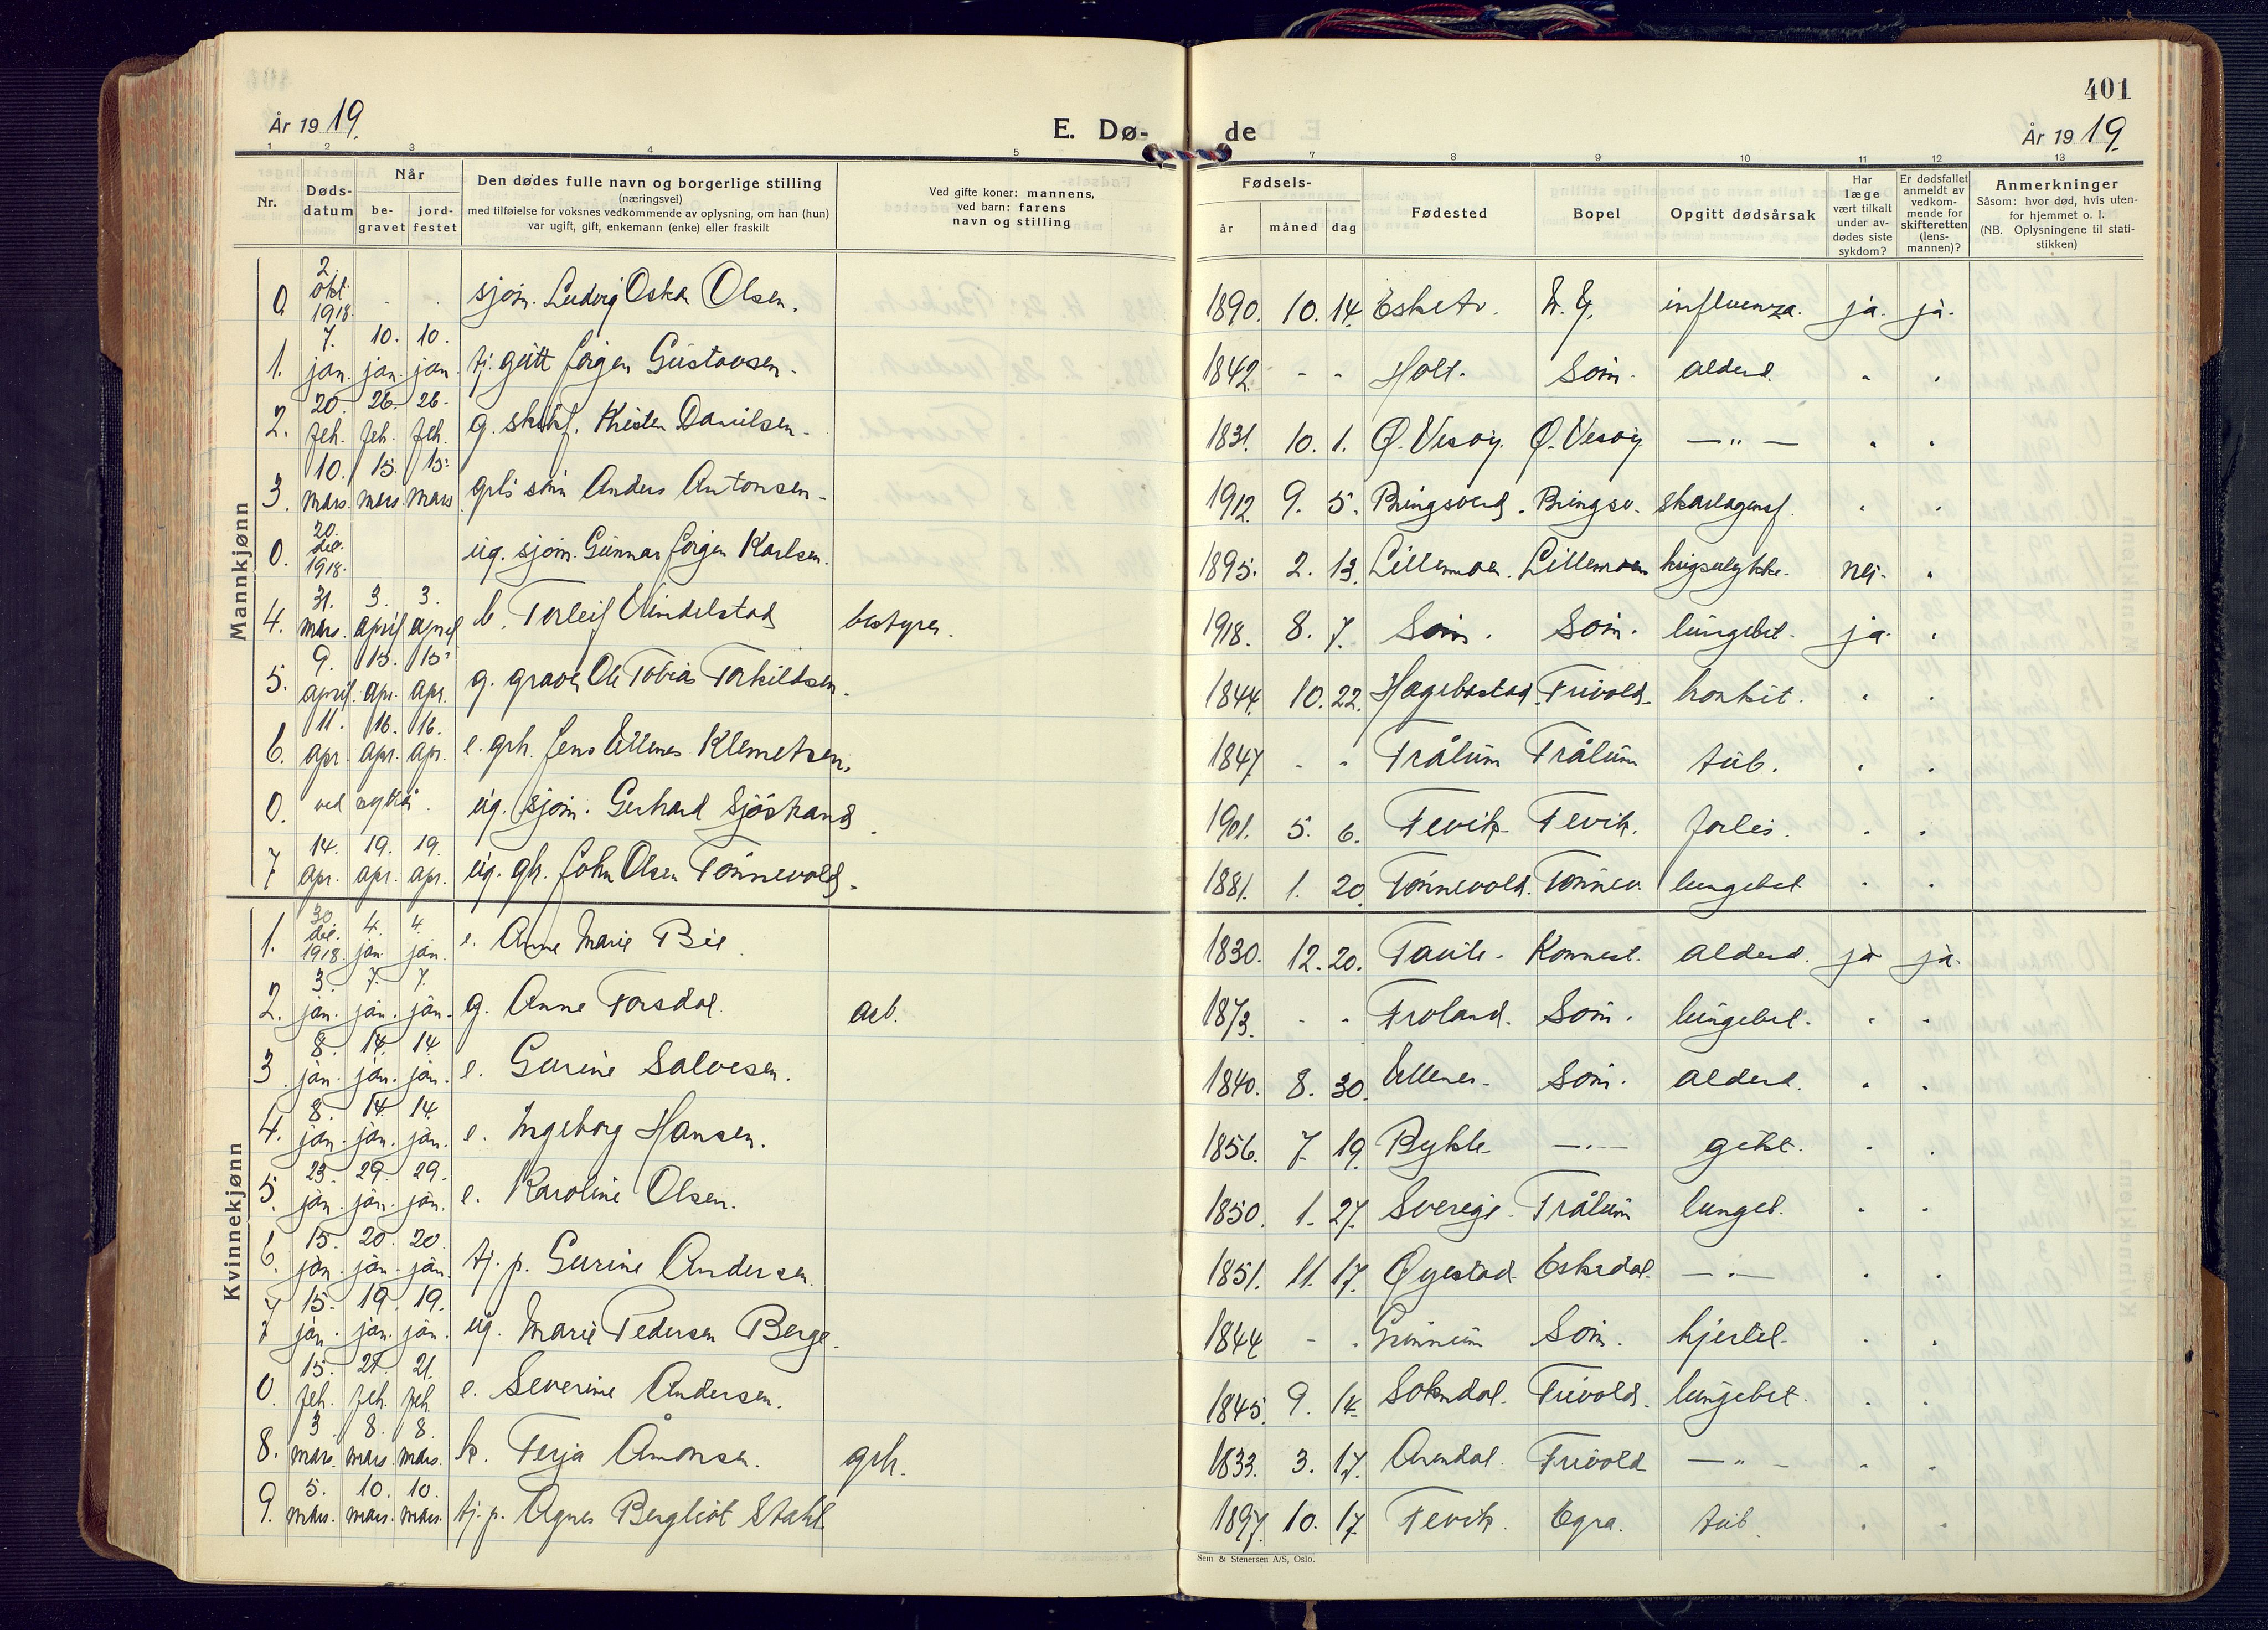 401
År 1919.
E. Dø-
de
År 1919.
1 2 3 4 5 7 8 9 10 11 12 13
Nr.
Døds-
datum
Når
be-
gravet
jord-
festet
Den dødes fulle navn og borgerlige stilling
(næringsvei)
med tilføielse for voksnes vedkommende av oplysning, om han (hun)
var ugift, gift, enkemann (enke) eller fraskilt
Ved gifte koner: mannens,
ved barn: farens
navn og stilling
Fødsels-
år måned dag
Fødested
Bopel
Opgitt dødsårsak
Har
læge
vært tilkalt
under av-
dødes siste
sykdom?
Er dødsfallet
anmeldt av
vedkom-
mende for
skifteretten
(lens-
mannen)?
Anmerkninger
Såsom: hvor død, hvis uten-
for hjemmet o. l.
(NB. Oplysningene til stati-
stikken)
Mannkjønn
0. 2. okt. 1918. sjøm. Ludvig Oskar Olsen. 1890. 10. 14. N. Y. influenza. ja. ja.
1. 7. jan. 10. jan. 10. jan. tj. gutt Jørgen Gustavsen. 1842. - - Holt. Søm. alderd. " "
2. 20. feb. 26. feb. 26. feb. g. Kristen Danielsen. 1831. 10. 1. Ø. Vesøy. Ø. Vesøy — " — " "
3. 10. mars. 15. mars 15. mars grbs. søn Anders Antonsen. 1912. 9. 5. Bringsverd. Bringsv. skarlagensf. " "
0. 20. des. 1918. ug. sjøm. Gunnar Jørgen Karlsen. 1895. 2. 13. Lillemoen. Lillemoen krigsulykke. nei. "
4. 31. mars. 3. april 3. april b. Torleif Vindelstad bestyrer. 1918. 8. 7. Søm. Søm. lungebet. ja. "
5. 9. april. 15. apr. 15. apr. g. graver Ole Tobias Torkildsen. 1844. 10. 22. Hægebostad. Frivold. bronkit. " "
6. 11. apr. 16. apr. 16. apr. e. grb. Jens Ullenes Klemetsen. 1847. - - Trålum Trålum tub. " "
0. ug. sjøm. Gerhard Sjöstrand. 1901. 5. 6. Fevik. Fevik. forlis. " "
7 14. apr. 19. apr. 19. apr. ug. gb. John Olsen Tønnevold. 1881. 1. 20. Tønnevold. Tønnev. lungebet " "
Kvinnekjønn
1. 30. des. 1918. 4. jan. 4. jan. e. Anne Marie Bie. 1830. 12. 20. alderd. ja ja.
2. 3. jan. 7. jan. 7. jan. g. Anne Torsdal. arb. 1873. - - Froland. Søm. lungebet. " "
3. 8. jan. 14. jan. 14. jan. e. Gurine Salvesen. 1840. 8. 30. Ullenes. Søm. alderd. " "
4. 8. jan. 14. jan. 14. jan. e. Ingeborg Hansen. 1856. 7. 19. Bykle — " — gikt. " "
5. 23. jan. 29. jan. 29. jan. e. Karoline Olsen. 1850. 1. 27. Sverige. Trålum lungeb. " "
6. 15. jan. 20. jan. 20. jan. tj. p. Gurine Andersen. 1851. 11. 17. Øyestad. Eskedal. — " — " "
7 15. jan. 19. jan. 19. jan. ug. Marie Pedersen Berge. 1844 - - Søm. hjertel. " "
0. 15. feb. 21. feb. 21. feb. e. Severine Andersen. 1845. 9. 14. Sokndal. Frivold. lungebet. " "
8. 3 mars. 8. mars. 8. mars. k. Terja Åmonsen. grb. 1833. 3. 17. Arendal. Frivold — " — " "
9. 5. mars. 10. mars. 10. mars. tj. p. Agnes Bergliot Stahl 1897. 10. 17. Fevik. Egra. tub. " "
Sem & Stenersen A/S, Oslo.